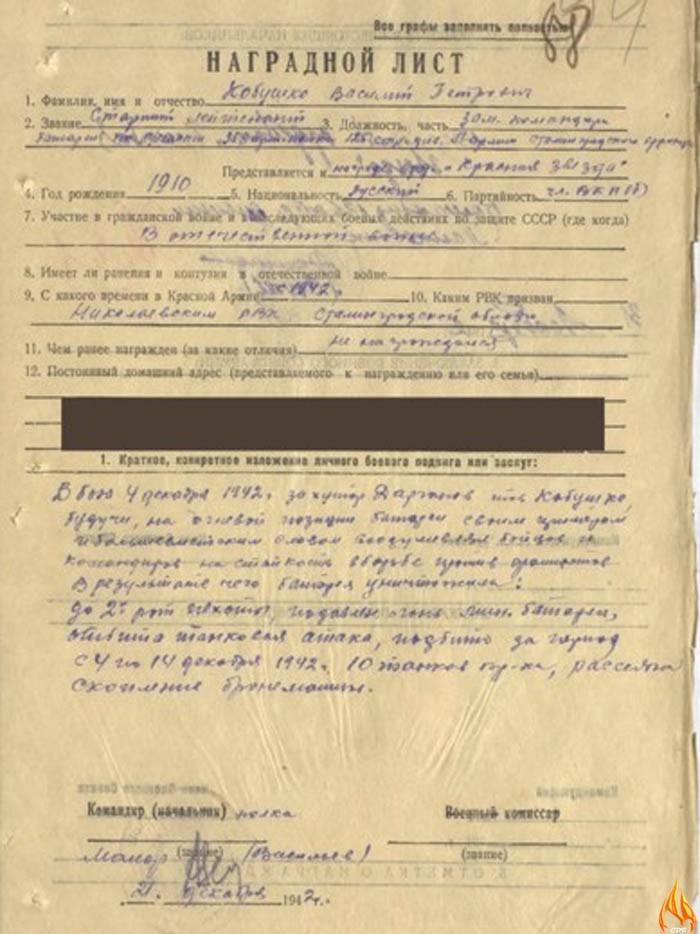 Все графы заполнять полностью
НАГРАДНОЙ ЛИСТ
1. Фамилия, имя и отчество Кобушко Василий Петрович
2. Звание Старший лейтенант 3. Должность, часть зам. командира
батареи по Сталинградского фронта
Представляется к награде орд. „Красная Звезда"
4. Год рождения 1910 5. Национальность Русский 6. Партийность чл. ВКП(б)
7. Участие в гражданской войне и последующих боевых действиях по защите СССР (где когда)
В отечественной войне
8. Имеет ли ранения и контузии в отечественной войне
9. С какого времени в Красной Армии с 1942г. 10. Каким РВК призван
Николаевским РВК Сталинградской области
11. Чем ранее награжден (за какие отличия) не награждался
12. Постоянный домашний адрес (представляемого к награждению или его семьи)
1. Краткое, конкретное изложение личного боевого подвига или заслуг:
В бою 4 декабря 1942г. за хутор Кобушко
будучи, на огневой позиции батареи своим примером
и большевистским словом воодушевлял бойцов и
командиров на стойкость в борьбе против
В результате чего батарея уничтожила:
до 2х рот пехоты, подавлен огонь мин. батареи,
отбита танковая атака, подбито за период
с 4 по 14 декабря 1942г. 10 танков пр-ка, рассеяно
скопление бронемашин.
Командир (начальник) полка
Военный комиссар
Майор (звание) (Васильев)
(звание)
21 декабря 1942г.